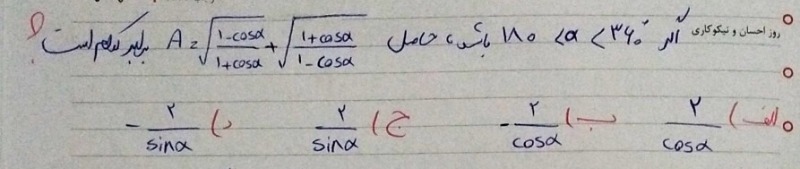 روز احسان و نیکوکاری
اگر ۱۸۰ < α < ۳۶۰° باشد، حاصل A = √((1-cosα)/(1+cosα)) + √((1+cosα)/(1-cosα)) برابر کدام است؟
الف) ۲/cosα ب) -۲/cosα ج) ۲/sinα د) -۲/sinα